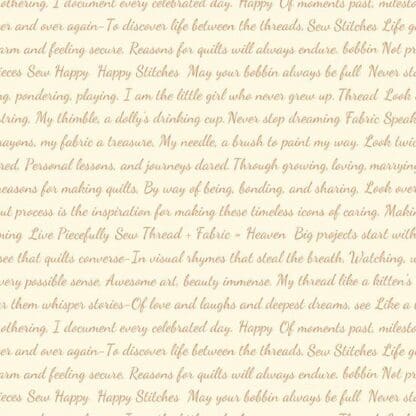 othering, I document every celebrated day. Happy Of moments past, milesto
er and over again-To discover life between the threads. Sew Stitches Life g
arm and feeling secure. Reasons for quilts will always endure. bobbin Not pr
ieces Sew Happy Happy Stitches May your bobbin always be full Never sto
ng, pondering, playing. I am the little girl who never grew up. Thread Look
string. My thimble, a dolly's drinking cup. Never stop dreaming Fabric Speak
rayons, my fabric a treasure. My needle, a brush to paint my way. Look twic
red. Personal lessons, and journeys dared. Through growing, loving, marrying
reasons for making quilts, By way of being, bonding, and sharing, Look over
ut process is the inspiration for making these timeless icons of caring. Makin
ming Live Piecefully Sew Thread + Fabric = Heaven Big projects start with
see that quilts converse-In visual rhymes that steal the breath. Watching, w
very possible sense. Awesome art, beauty immense. My thread like a kitten's
er them whisper stories-Of love and laughs and deepest dreams, see Like a t
othering, I document every celebrated day. Happy Of moments past, milesto
er and over again-To discover life between the threads. Sew Stitches Life g
arm and feeling secure. Reasons for quilts will always endure. bobbin Not pr
ieces Sew Happy Happy Stitches May your bobbin always be full Never sto